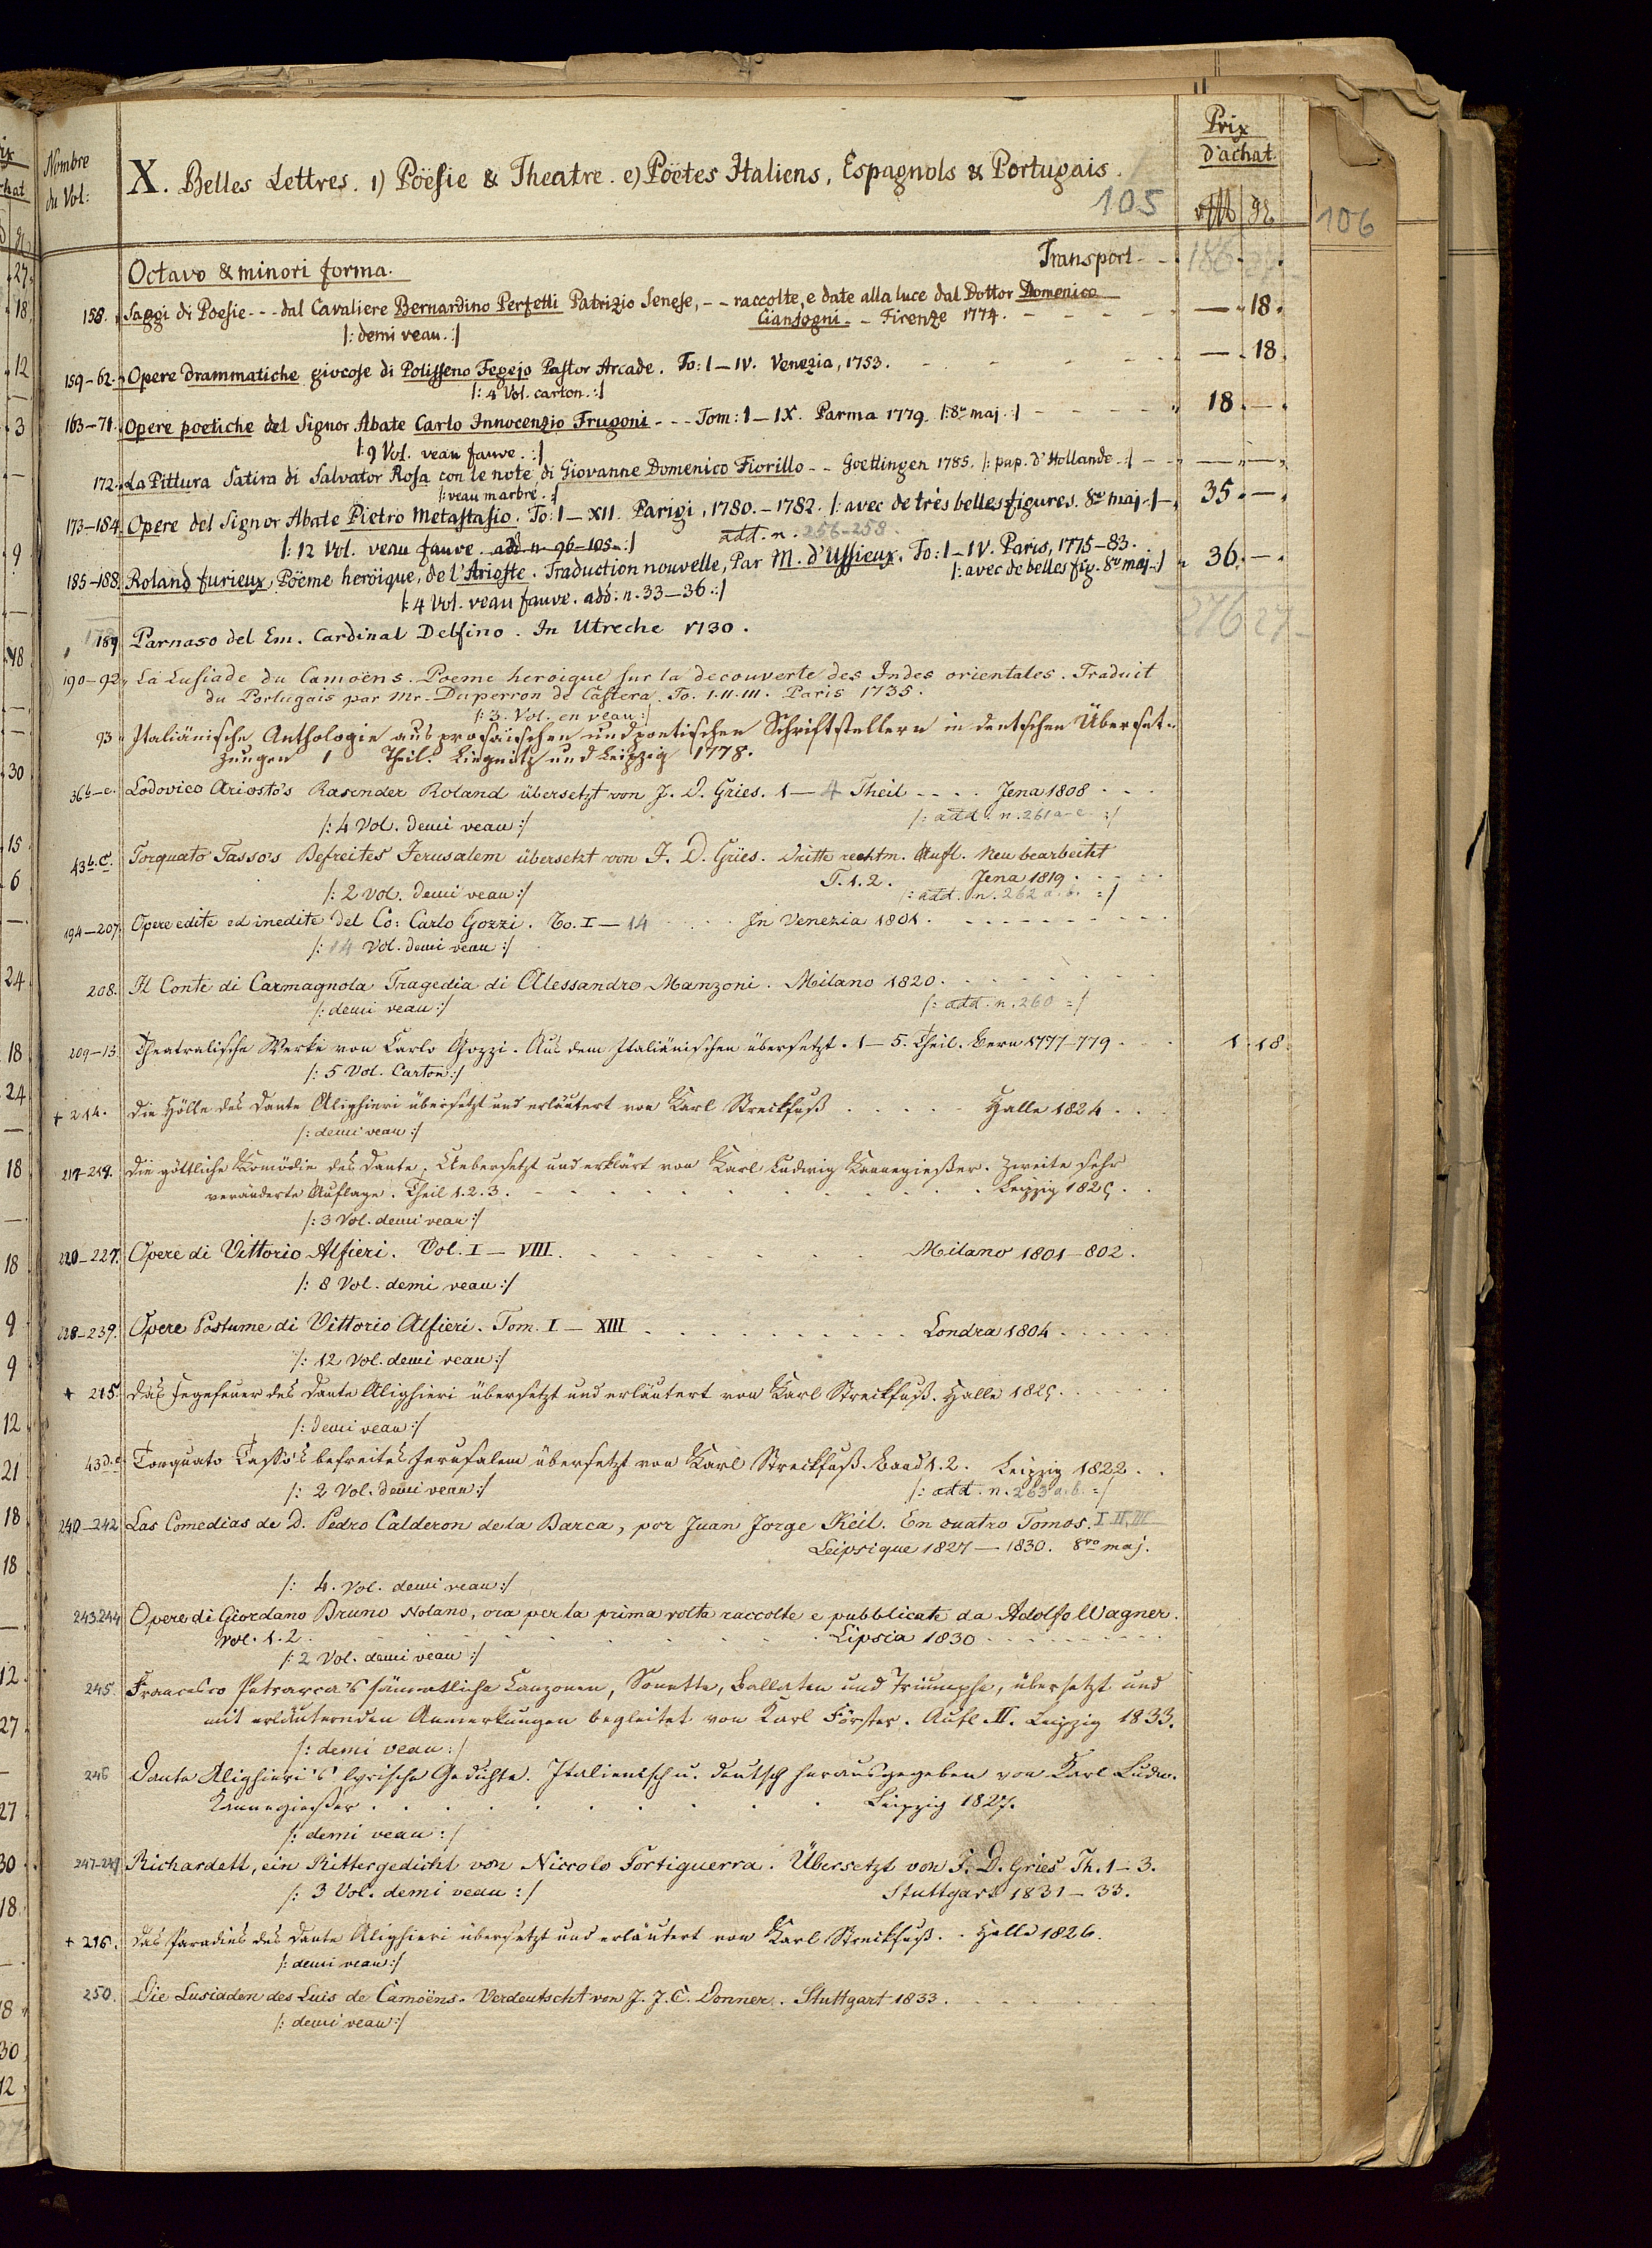 Nombre
du Vol:
X. Belles Lettres. 1) Poësie & Theatre. e) Poëtes Italiens, Espagnols & Portugais.
105
Prix
d'achat
106
Octavo & minori forma.
Transport - -
186 27
158. Saggi di Poesie - - - dal Cavaliere Bernardino Perfetti Patrizio Senese, - - raccolte, e date alla luce dal Dottor Domenico — 18.
Cianfogni - - Firenze 1774.
|: demi veau. :|
159-62. Opere drammatiche giocose di Polisseno Fegejo Pastor Arcade. To: I-IV. Venezia, 1753. — 18.
|: 4 Vol. carton. :|
163-71. Opere poetiche del Signor Abate Carlo Innocenzio Frugoni - - - Tom: I-IX. Parma 1779. |: 8vo maj. :| 18. —
|: 9 Vol. veau fauve. :|
172. La Pittura Satira di Salvator Rosa con le note di Giovanne Domenico Fiorillo - - Goettingen 1785. |: pap. d'Hollande. :| — —
|: veau marbré. :|
173-184. Opere del Signor Abate Pietro Metastasio. To: I-XII. Parigi, 1780.-1782. |: avec de très belles figures. 8vo maj. :| 35. —
|: 12 Vol. veau fauve. add. n. 96-105. :| add. n. 256-258.
185-188. Roland furieux, Pöeme heroïque, de l'Arioste. Traduction nouvelle, Par M. d'Ussieux. To: I-IV. Paris, 1775-83. 36. —
|: avec de belles fig. 8vo maj. :|
|: 4 Vol. veau fauve. add: n. 33-36. :|
276 27
189 Parnaso del Em. Cardinal Delfino. In Utreche 1730.
190-92. La Lusiade du Camoëns. Poeme heroique sur la decouverte des Indes orientales. Traduit
du Portugais par Mr. Duperron de Castera. To. I.II.III. Paris 1735.
|: 3. Vol. en veau :|
93 Italiänische Anthologie aus prosaischen und poetischen Schriftstellern in deutschen Überset-
zungen 1 Theil. Liegnitz und Leipzig 1778.
36b-e. Lodovico Ariosto's Rasender Roland übersetzt von J. D. Gries. 1-4 Theil - - - - Jena 1808
|: 4 Vol. demi veau :| |: add. n. 261 a-c :|
43b.c. Torquato Tasso's Befreites Jerusalem übersetzt von J. D. Gries. Dritte rechtm. Aufl. Neu bearbeitet
T. 1. 2. Jena 1819.
|: 2 Vol. demi veau :| |: add. n. 262 a. b. :|
194-207. Opere edite ed inedite del Co: Carlo Gozzi. To. I-14 In Venezia 1801.
|: 14 Vol. demi veau :|
208. Il Conte di Carmagnola Tragedia di Alessandro Manzoni. Milano 1820.
|: demi veau :| |: add. n. 260 :|
209-13 Theatralische Werke von Carlo Gozzi. Aus dem Italiänischen übersetzt. 1-5. Theil. Bern 1777-779. 1. 18.
|: 5 Vol. Carton :|
+ 214. Die Hölle des Dante Alighieri übersetzt und erläutert von Karl Streckfuß Halle 1824.
|: demi veau :|
217-219. Die göttliche Komödie des Dante. Uebersetzt und erklärt von Karl Ludwig Kannegießer. Zweite sehr
veränderte Auflage. Theil 1. 2. 3. Leipzig 1825.
|: 3 Vol. demi veau :|
220-227. Opere di Vittorio Alfieri. Vol. I-VIII. Milano 1801-802.
|: 8 Vol. demi veau :|
228-239. Opere Postume di Vittorio Alfieri. Tom. I-XIII Londra 1804.
|: 12 Vol. demi veau :|
+ 215. Das Fegefeuer des Dante Alighieri übersetzt und erläutert von Karl Streckfuß. Halle 1825.
|: demi veau :|
43d.e Torquato Tasso's befreites Jerusalem übersetzt von Karl Streckfuß. Band 1. 2. Leipzig 1822.
|: 2 Vol. demi veau :| |: add. n. 263 a. b. :|
240-242 Las Comedias de D. Pedro Calderon de la Barca, por Juan Jorge Keil. En cuatro Tomos. I II, III
Leipsique 1827-1830. 8vo maj.
|: 4. Vol. demi veau :|
243 244 Opere di Giordano Bruno Nolano, ora per la prima volta raccolte e pubblicate da Adolfo Wagner.
Vol. 1. 2. Lipsia 1830
|: 2 Vol. demi veau :|
245. Francesco Petrarca's sämmtliche Canzonen, Sonette, Ballaten und Triumphe, übersetzt und
mit erläuternden Anmerkungen begleitet von Karl Förster. Aufl. II. Leipzig 1833.
|: demi veau :|
246 Dante Alighieri's lyrische Gedichte. Italienisch u. deutsch herausgegeben von Karl Ludw.
Kannegießer. Leipzig 1827.
|: demi veau :|
247-249 Richardett, ein Rittergedicht von Niccolo Fortiguerra. Übersetzt von J. D. Gries Th. 1-3.
|: 3 Vol. demi veau :| Stuttgart 1831-33.
+ 216. Das Paradies des Dante Alighieri übersetzt und erläutert von Karl Streckfuß. Halle 1826.
|: demi veau :|
250. Die Lusiaden des Luis de Camoëns. Verdeutscht von J. J. C. Donner. Stuttgart 1833.
|: demi veau :|